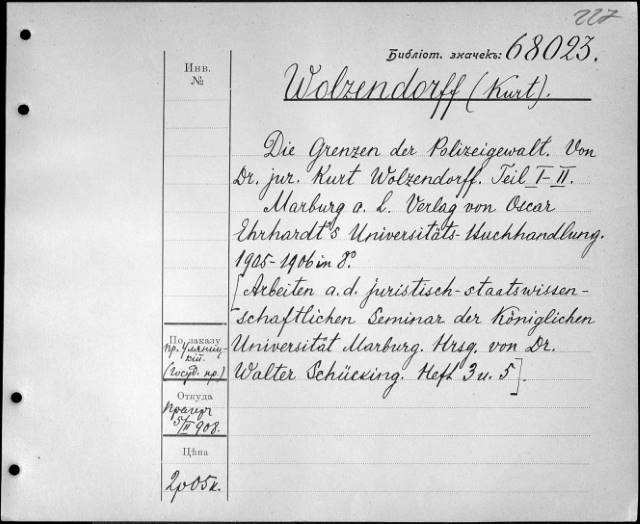 227
Библіот. значекъ: 68023.
Инв.
№
Wolzendorff (Kurt).
Die Grenzen der Polizeigewalt. Von
Dr. jur. Kurt Wolzendorff. Teil I-II.
Marburg a. L. Verlag von Oscar
Ehrhardt's Universitäts-Buchhandlung.
1905-1906 in 8°.
[Arbeiten a. d. juristisch-staatswissen-
-schaftlichen Seminar der Königlichen
Universität Marburg. Hrsg. von Dr.
Walter Schücking. Heft 3 u. 5].
По заказу
пр. Уляниц-
кій.
(госуд. пр.)
Откуда
Прагеръ
5/II 908.
Цѣна
2р 05к.